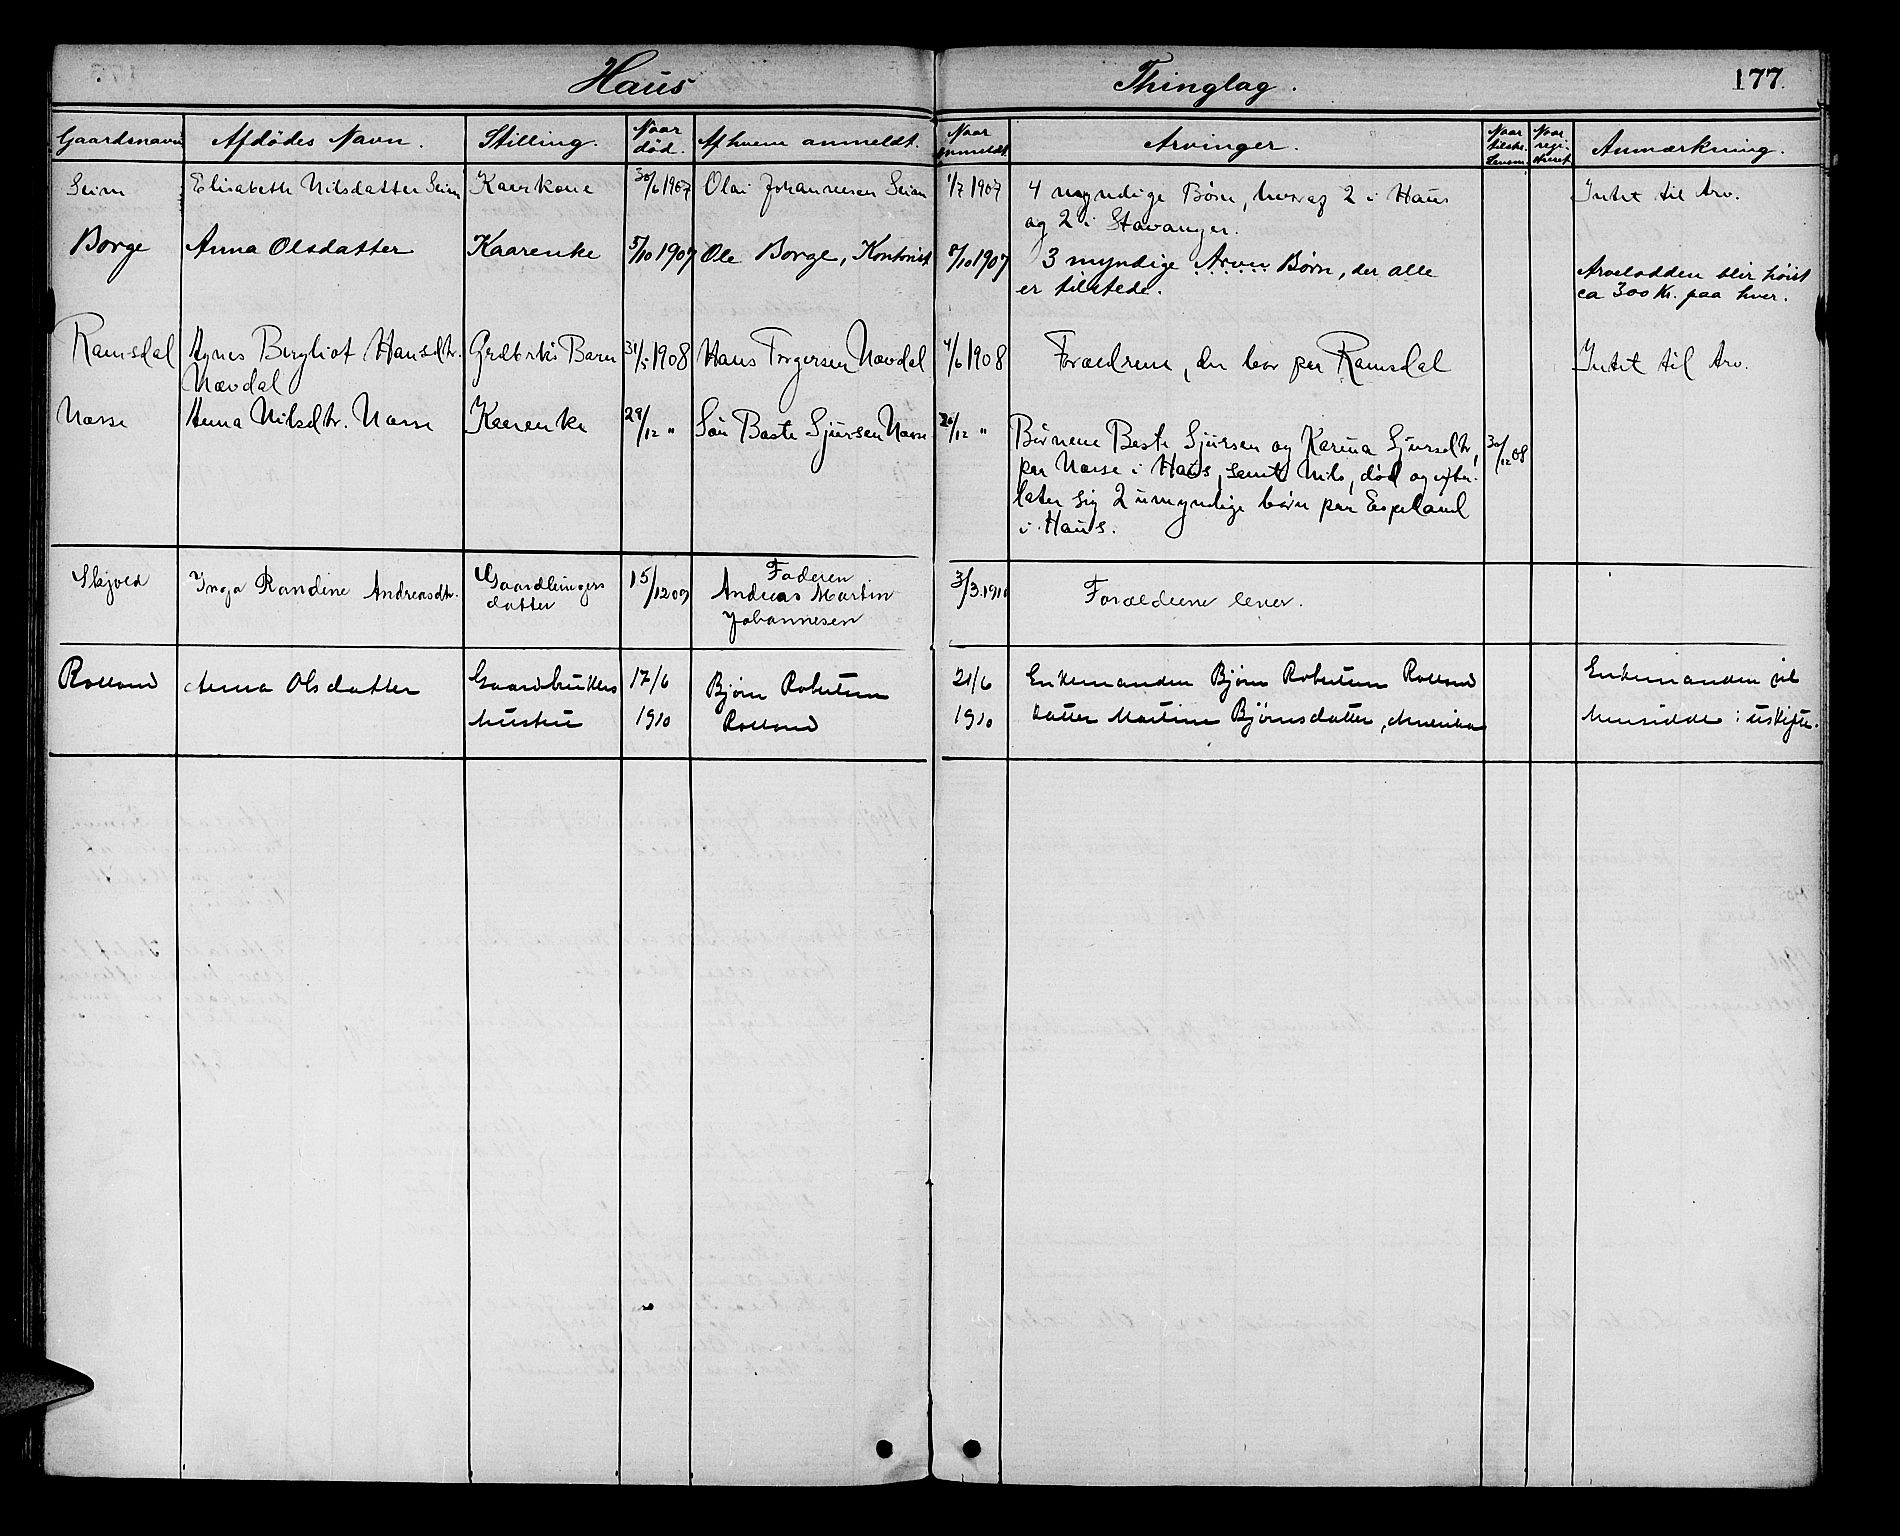 Haus Thinglag. 177.
Gaardsnavn Afdødes Navn. Stilling. Naar død. Af hvem anmeldt. Naar anmeldt Arvinger. Naar tilskr. Naar regi- streret Anmærkning.
Seim Elisabeth Nilsdatter Seim Kaarkone 30/6 1907 Olai Johannesen Seim 1/7 1907 4 myndige Børn, hvoraf 2 i Haus Intet til Arv.
og 2 i Stavanger.
Borge Anna Olsdatter Kaarenke 5/10 1907 Ole Borge, Kontorist 8/10 1907 3 myndige Arvn Børn, der alle
er tilstede.
Arvelodden blir høist
ca 300 Kr. paa hver.
Ramsdal Agnes Bergliot Hansdtr. Grdbrks Barn 31/5 1908 Hans Torgersen Nævdal 4/6 1908 Forældrene, der bor paa Ramsdal Intet til Arv.
Nævdal
Næsse Anna Nilsdtr. Næsse Kaarenke 29/12 " Søn Beste Sjursen Næsse /12 " Børnene Beste Sjursen og Karina Sjursdtr, 30/12 08
paa Næsse i Haus, samt Nils, død og efter-
later sig 2 umyndige børn paa Espeland
i Haus.
Skjold Inga Randine Andreasdtr. Gaardbrugers 15/12 09 Faderen 3/3.1910 Forældrene lever.
datter Andreas Martin
Johannesen
Rolland Anna Olsdatter Gaardbrukers 17/6 Bjørn Robertsen 21/6 Enkemanden Bjørn Robertsen Rolland Enkemanden vil
hustru 1910 Rolland 1910 datter Martine Bjørnsdatter, Amerika hensidde i uskifte.